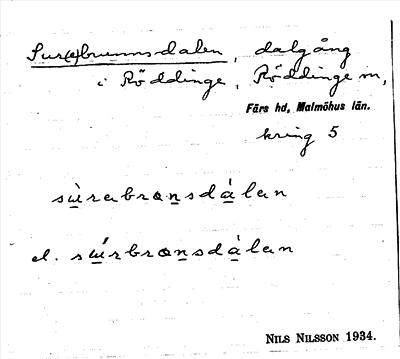 Sur(e)brunnsdalen, dalgång
i Röddinge, Röddinge sn,
Färs hd, Malmöhus län.
kring 5
sùrabrọnsdálan
el. su̇́rbrọnsdàlan
NILS NILSSON 1934.